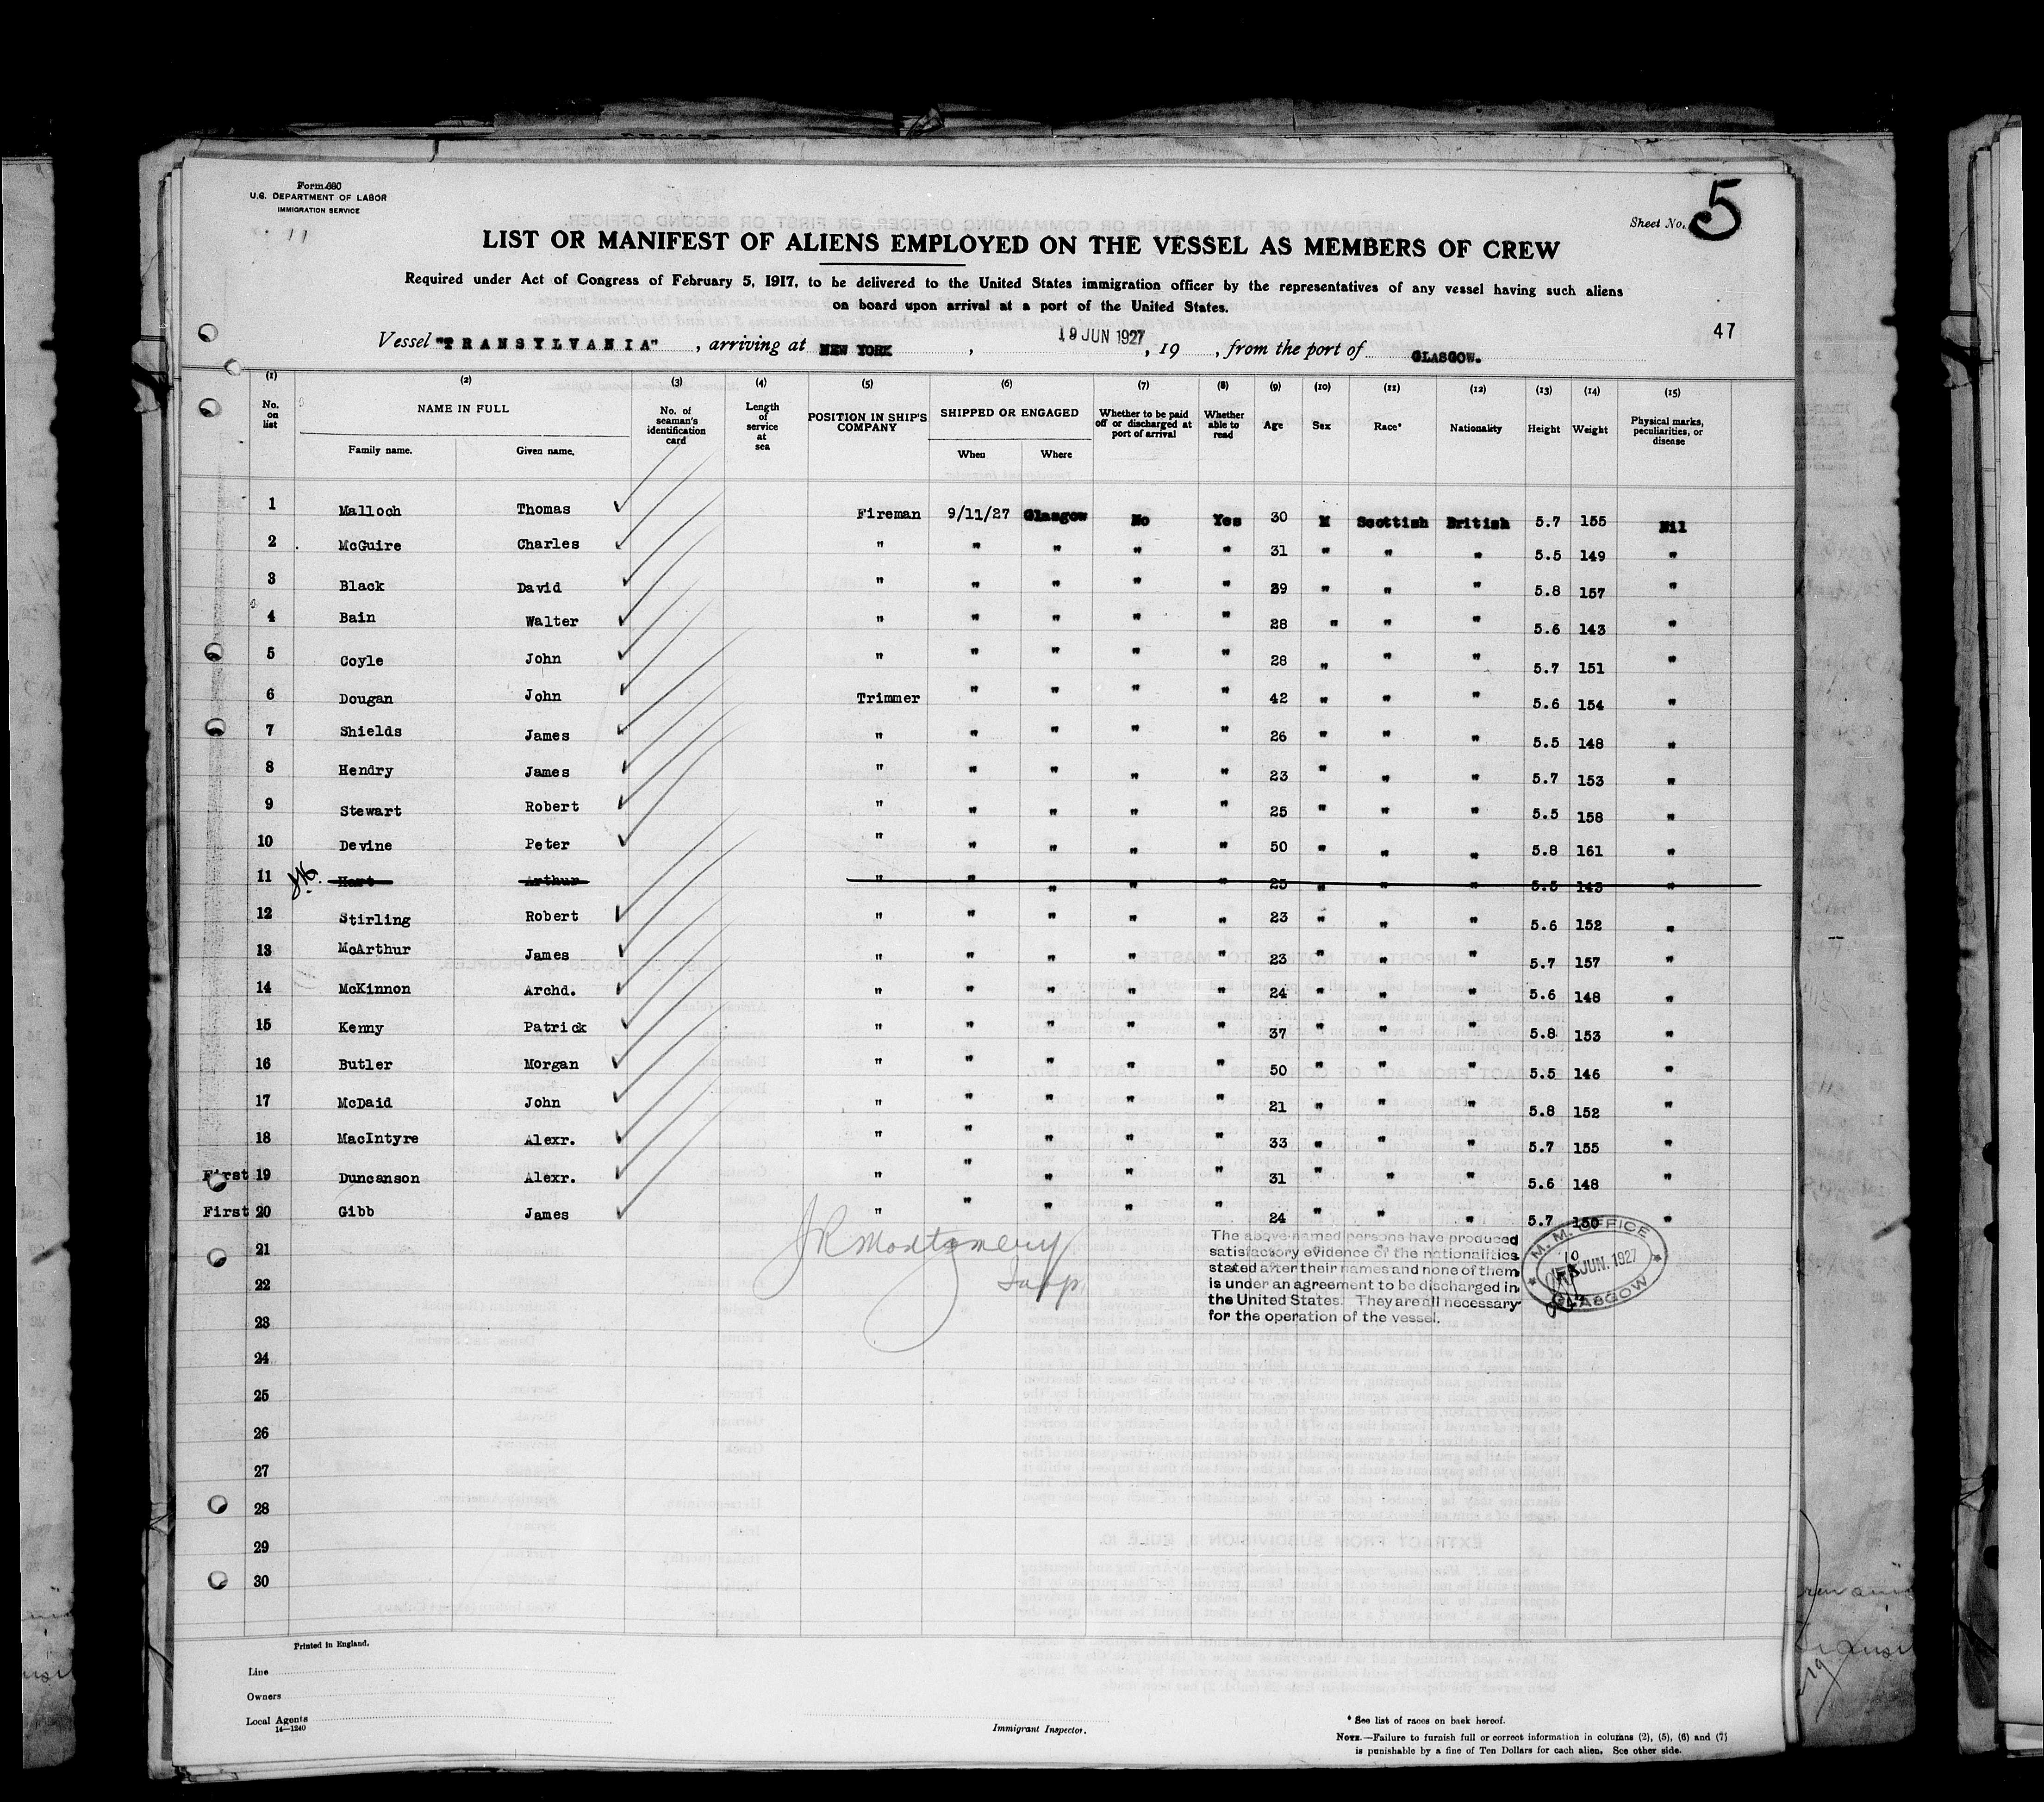 Form 680
U.S. DEPARTMENT OF LABOR
IMMIGRATION SERVICE
Sheet No. 5
LIST OR MANIFEST OF ALIENS EMPLOYED ON THE VESSEL AS MEMBERS OF CREW
Required under Act of Congress of February 5, 1917, to be delivered to the United States immigration officer by the representatives of any vessel having such aliens
on board upon arrival at a port of the United States.
47
Vessel "TRANSYLVANIA", arriving at NEW YORK, 19 JUN 1927, 19 , from the port of GLASGOW.
(1) (2) (3) (4) (5) (6) (7) (8) (9) (10) (11) (12) (13) (14) (15)
No. on list NAME IN FULL Family name. Given name. No. of seaman's identification card Length of service at sea POSITION IN SHIP'S COMPANY SHIPPED OR ENGAGED When Where Whether to be paid off or discharged at port of arrival Whether able to read Age Sex Race* Nationality Height Weight Physical marks, peculiarities, or disease
1 Malloch Thomas Fireman 9/11/27 Glasgow No Yes 30 M Scottish British 5.7 155 Nil
2 McGuire Charles " " " " " 31 " " " 5.5 149 "
3 Black David " " " " " 39 " " " 5.8 157 "
4 Bain Walter " " " " " 28 " " " 5.6 143 "
5 Coyle John " " " " " 28 " " " 5.7 151 "
6 Dougan John Trimmer " " " " 42 " " " 5.6 154 "
7 Shields James " " " " " 26 " " " 5.5 148 "
8 Hendry James " " " " " 23 " " " 5.7 153 "
9 Stewart Robert " " " " " 25 " " " 5.5 158 "
10 Devine Peter " " " " " 50 " " " 5.8 161 "
11 Hart Arthur " " " " " 25 " " " 5.5 143 "
12 Stirling Robert " " " " " 23 " " " 5.6 152 "
13 McArthur James " " " " " 23 " " " 5.7 157 "
14 McKinnon Archd. " " " " " 24 " " " 5.6 148 "
15 Kenny Patrick " " " " " 37 " " " 5.8 153 "
16 Butler Morgan " " " " " 50 " " " 5.5 146 "
17 McDaid John " " " " " 21 " " " 5.8 152 "
18 MacIntyre Alexr. " " " " " 33 " " " 5.7 155 "
First 19 Duncanson Alexr. " " " " " 31 " " " 5.6 148 "
First 20 Gibb James " " " " " 24 " " " 5.7 150 "
21
22
23
24
25
26
27
28
29
30
JR Montgomery
Insp.
The above named persons have produced
satisfactory evidence of the nationalities
stated after their names and none of them
is under an agreement to be discharged in
the United States. They are all necessary
for the operation of the vessel.
M. M. OFFICE
10 JUN. 1927
GLASGOW
Printed in England.
Line
Owners
Local Agents
14—1240
Immigrant Inspector.
* See list of races on back hereof.
NOTE.—Failure to furnish full or correct information in columns (2), (5), (6) and (7)
is punishable by a fine of Ten Dollars for each alien. See other side.